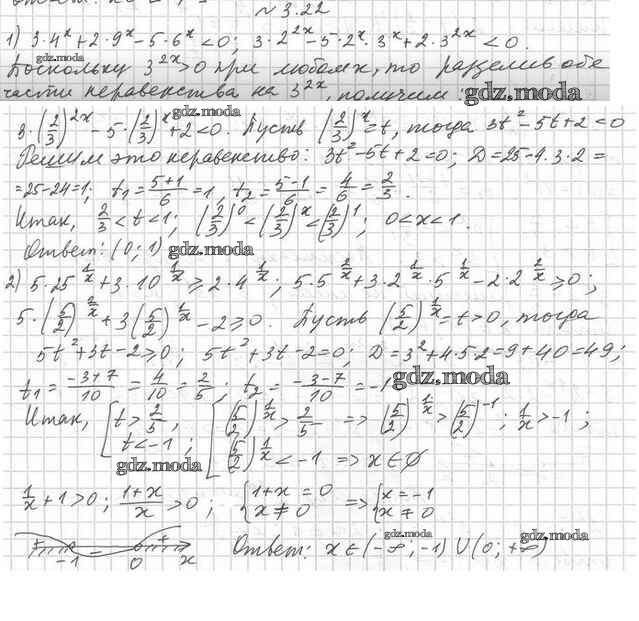 № 3.22
1) 3·4^x+2·9^x-5·6^x<0; 3·2^{2x}-5·2^x·3^x+2·3^{2x}<0.
gdz.moda
Поскольку 3^{2x}>0 при любом x, то разделив обе
части неравенства на 3^{2x}, получим
gdz.moda
gdz.moda
3·(2/3)^{2x}-5·(2/3)^x+2<0. Пусть (2/3)^x=t, тогда 3t²-5t+2<0
Решим это неравенство: 3t²-5t+2=0; D=25-4·3·2=
=25-24=1; t₁=(5+1)/6=1, t₂=(5-1)/6=4/6=2/3.
Итак, 2/3<t<1; (2/3)^0<(2/3)^x<(2/3)^1; 0<x<1.
Ответ: (0; 1) gdz.moda
2) 5·25^{1/x}+3·10^{1/x}≥2·4^{1/x}; 5·5^{2/x}+3·2^{1/x}·5^{1/x}-2·2^{2/x}≥0;
5·(5/2)^{2/x}+3(5/2)^{1/x}-2≥0. Пусть (5/2)^{1/x}=t>0, тогда
5t²+3t-2≥0; 5t²+3t-2=0; D=3²+4·5·2=9+40=49;
t₁=(-3+7)/10=4/10=2/5; t₂=(-3-7)/10=-1 gdz.moda
Итак, [t>2/5, t<-1; [(5/2)^{1/x}>2/5 => (5/2)^{1/x}>(5/2)^{-1}; 1/x>-1; (5/2)^{1/x}<-1 => x∈∅
gdz.moda
1/x+1>0; (1+x)/x>0; {1+x=0 x≠0 => {x=-1 x≠0
+ -1 - 0 + x
gdz.moda
gdz.moda
Ответ: x∈(-∞;-1)∪(0;+∞)